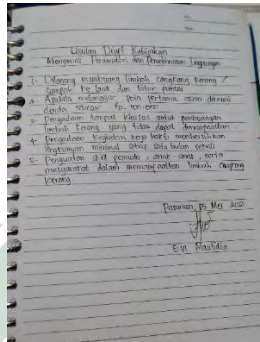 Usulan Draft Kebijakan
Mengenai Perawatan dan Pemeliharaan Lingkungan
1. Dilarang membuang limbah cangkang kerang /
sampah ke laut dan bibir pantai
2. Apabila melanggar poin pertama akan dikenai
denda sebesar Rp. 100.000
3. Pengadaan tempat khusus untuk pembuangan
limbah kerang yang tidak dapat dimanfaatkan
4. Pengadaan kegiatan kerja bakti membersihkan
lingkungan minimal setiap satu bulan sekali
5. Penguatan skill pemuda, anak-anak, serta
masyarakat dalam memanfaatkan limbah cangkang
kerang.
Pasuruan, 05 Mei
Evi Maulidia